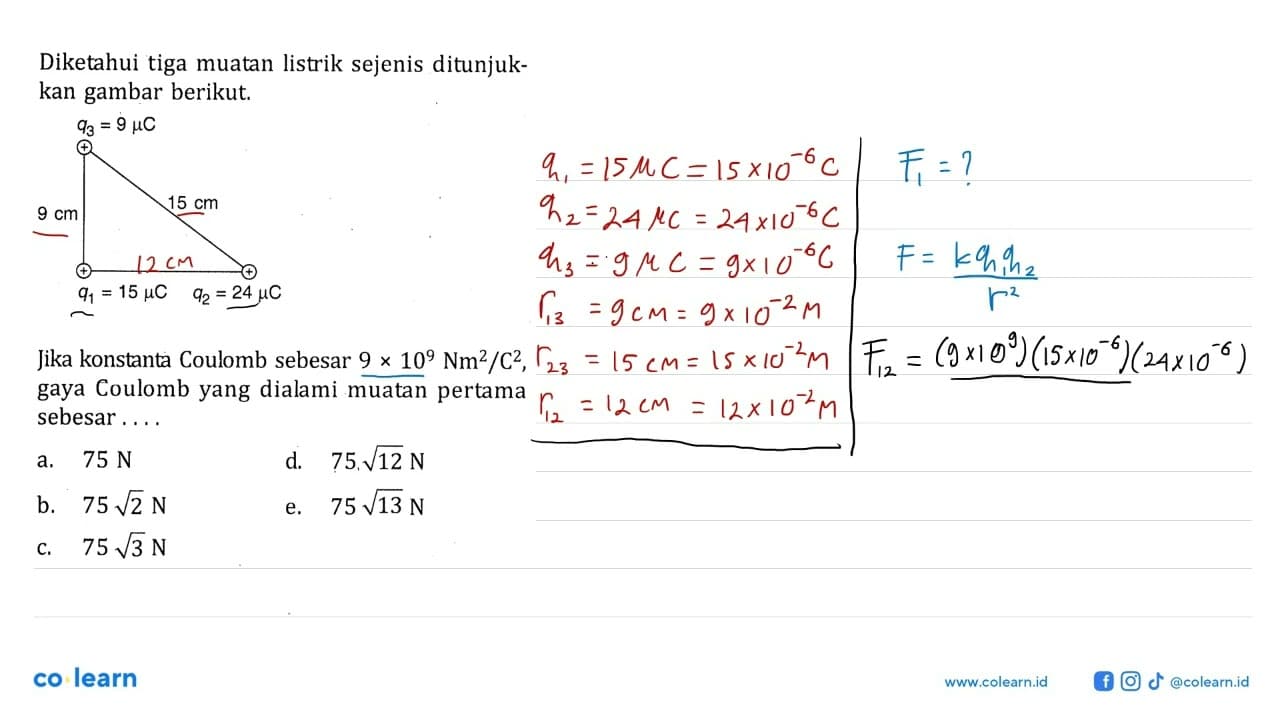 Diketahui tiga muatan listrik sejenis ditunjuk-
kan gambar berikut.
q₃ = 9 μC
9 cm
15 cm
12 cm
q₁ = 15 μC q₂ = 24 μC
Jika konstanta Coulomb sebesar 9 × 10⁹ Nm²/C²,
gaya Coulomb yang dialami muatan pertama
sebesar . . . .
a. 75 N
b. 75 √2 N
c. 75 √3 N
d. 75 √12 N
e. 75 √13 N
q₁ = 15 μC = 15 × 10⁻⁶ C
q₂ = 24 μC = 24 × 10⁻⁶ C
q₃ = 9 μC = 9 × 10⁻⁶ C
r₁₃ = 9 cm = 9 × 10⁻² M
r₂₃ = 15 cm = 15 × 10⁻² M
r₁₂ = 12 cm = 12 × 10⁻² M
F₁ = ?
F = k q₁ q₂
r²
F₁₂ = (9 × 10⁹) (15 × 10⁻⁶) (24 × 10⁻⁶)
co learn
www.colearn.id
@colearn.id